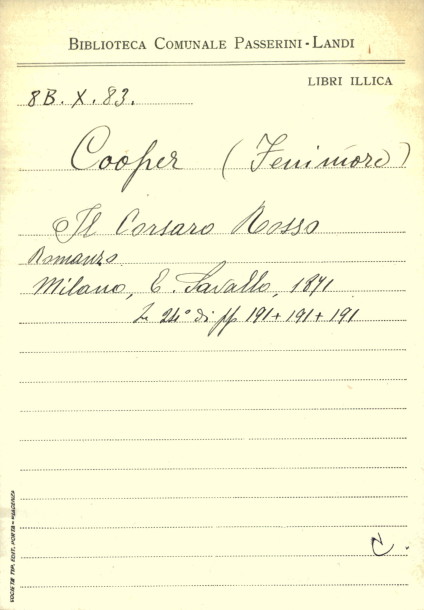 BIBLIOTECA COMUNALE PASSERINI-LANDI
LIBRI ILLICA
8B. X. 83.
Cooper (Fenimore)
Il Corsaro Rosso
Romanzo
Milano, E. Savallo, 1871
In 24° di pp 191+191+191